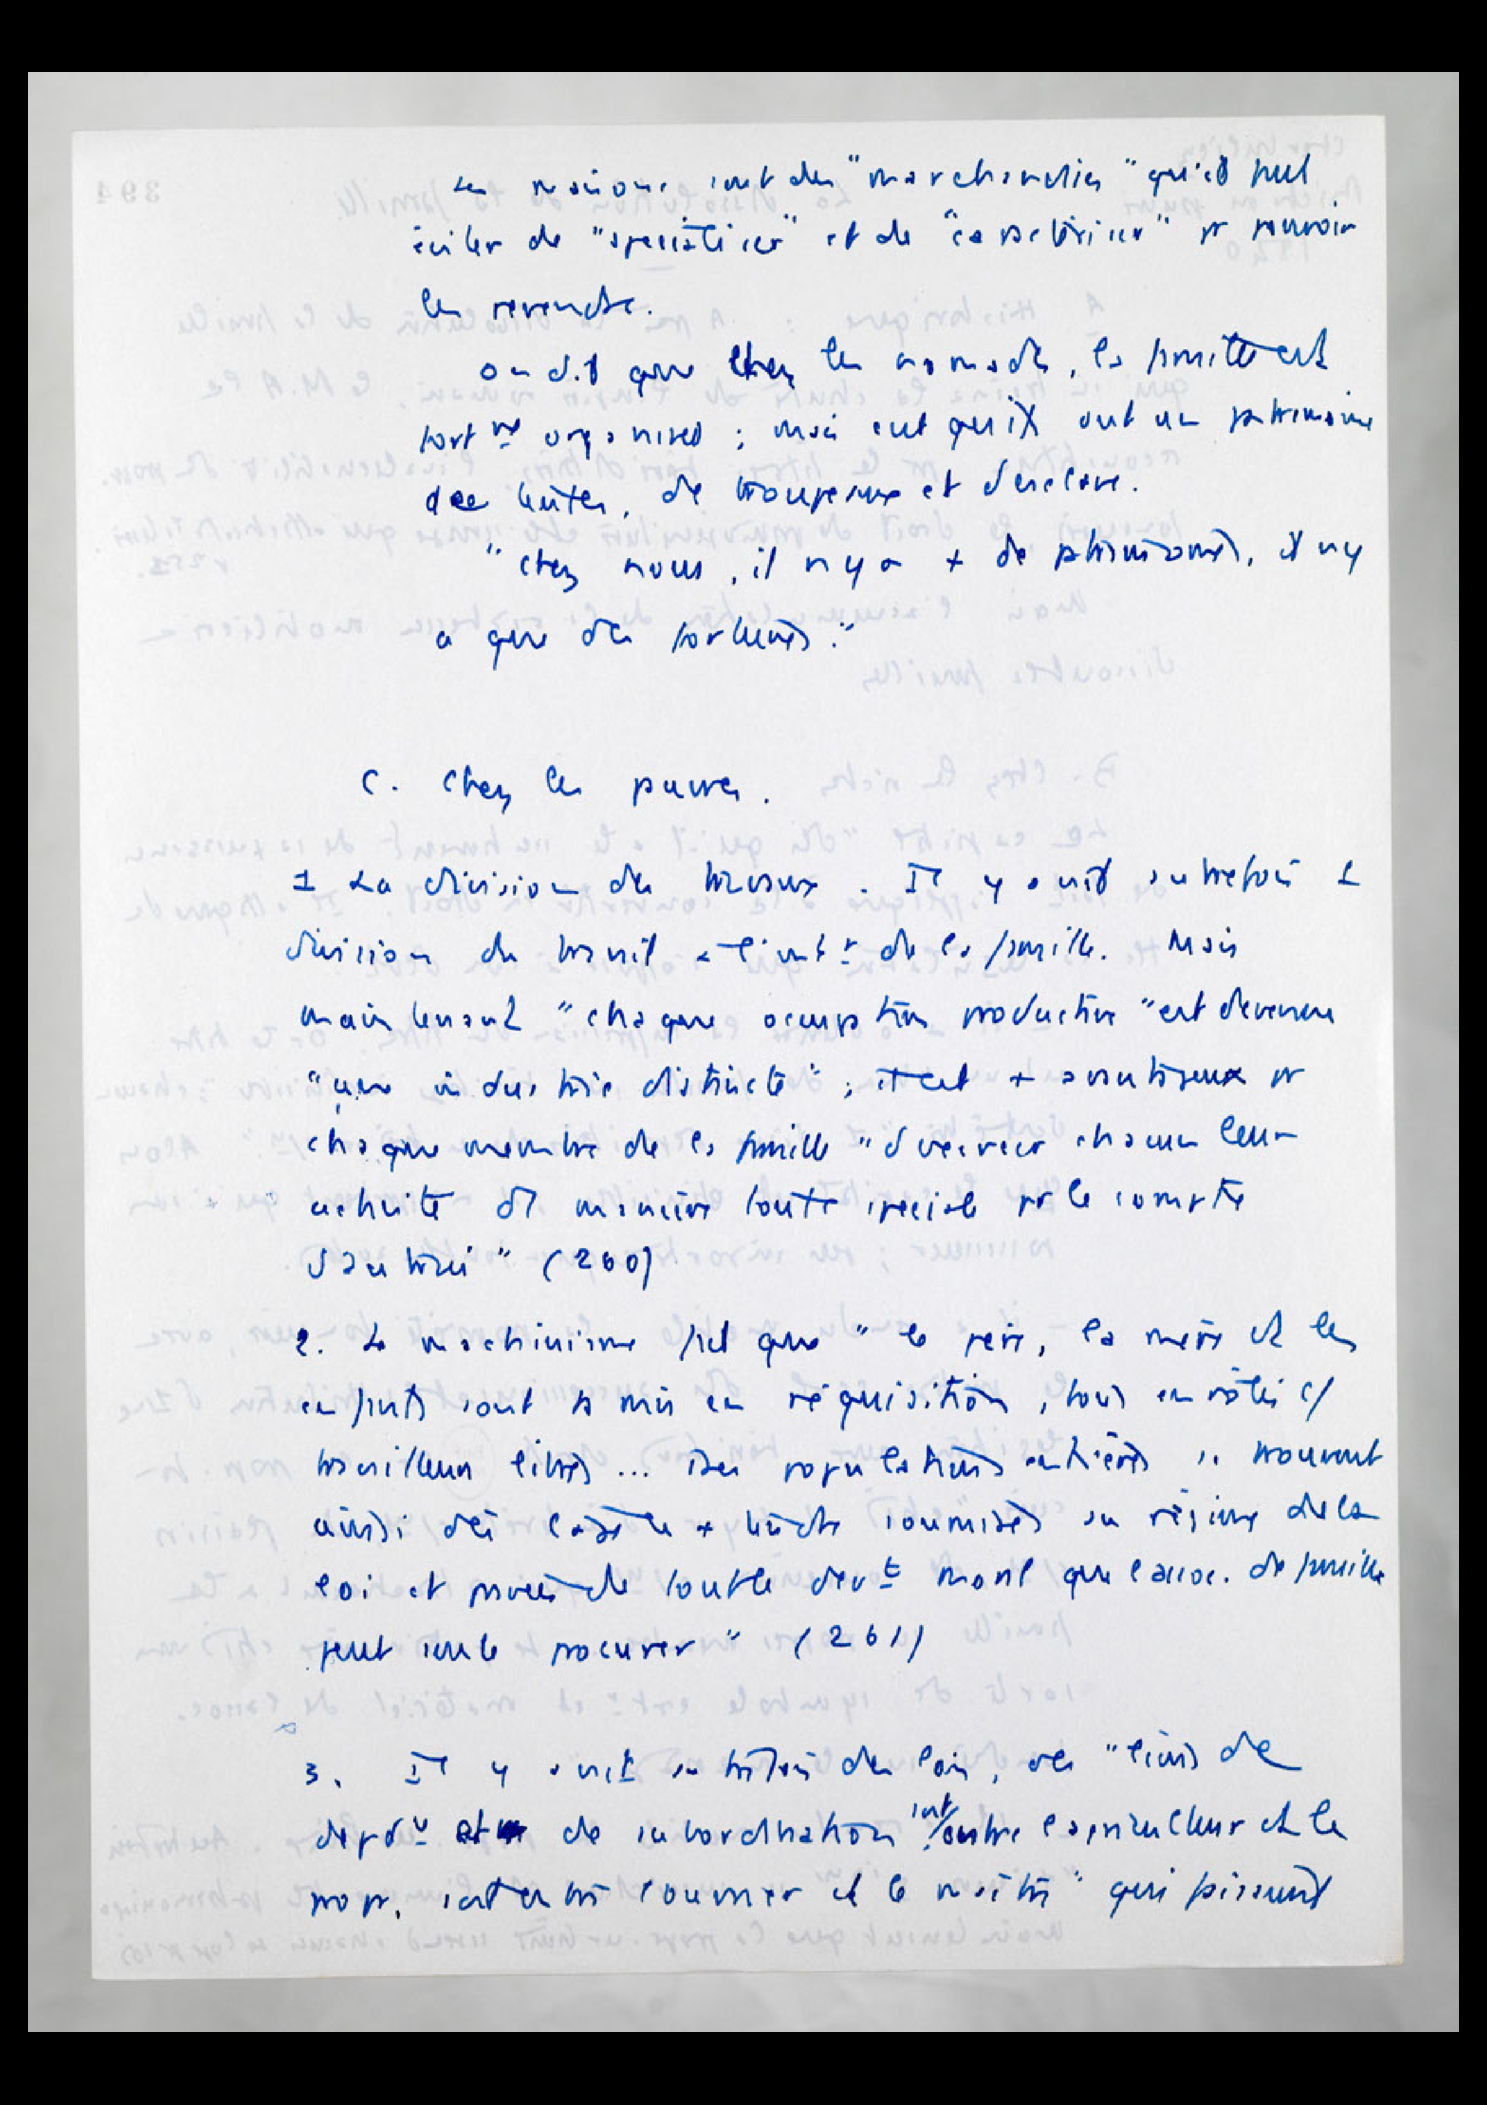 Les maisons sont des "marchandises" qu'il faut
éviter de "spécialiser" et de "caractériser" pr pouvoir
les revendre.
on dit que chez les nomades, la famille est
fort nt organisée ; mais c'est qu'ils ont un patrimoine
de tentes, de troupeaux et d'esclaves.
"chez nous, il n'y a + de patrimoines, il n'y
a que des fortunes."
C. Chez les pauvres.
1 La division des travaux. Il y avait autrefois 1
division du travail à l'intr de la famille. Mais
maintenant "chaque occupation productive" est devenue
"une industrie distincte" ; il est + avantageux pr
chaque membre de la famille "d'exercer chacun leur
activité de manière toute spéciale pr le compte
d'autrui" (260)
2. Le machinisme fait que "le père, la mère et les
enfants sont mis en réquisition, tous enrôlés c/
travailleurs libres ... Des populations entières se trouvent
ainsi dès l'âge le + tendre soumises au régime de la
loi et privées de tout le devt moral que l'assoc. de famille
peut seule procurer" (261)
3. Il y avait autrefois des lois, des "liens de
de subordination entre l'agriculteur et le
prop. entre l'ouvrier et le maître" qui faisaient